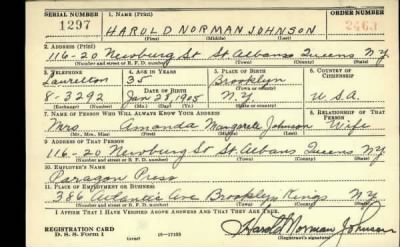 SERIAL NUMBER 1. NAME (Print) ORDER NUMBER
1297 HAROLD NORMAN JOHNSON 2463
(First) (Middle) (Last)
2. ADDRESS (Print)
116-20 Newburg St St Albans Queens N.Y.
(Number and street or R. F. D. number) (Town) (County) (State)
3. TELEPHONE 4. AGE IN YEARS 5. PLACE OF BIRTH 6. COUNTRY OF CITIZENSHIP
Laurelton 35 Brooklyn
DATE OF BIRTH (Town or county)
8-3292 Jan 28 1905 N.Y. U.S.A.
(Exchange) (Number) (Mo.) (Day) (Yr.) (State or country)
7. NAME OF PERSON WHO WILL ALWAYS KNOW YOUR ADDRESS 8. RELATIONSHIP OF THAT PERSON
Mrs Amanda Margarete Johnson Wife
(Mr., Mrs., Miss) (First) (Middle) (Last)
9. ADDRESS OF THAT PERSON
116-20 Newburg St St Albans Queens N.Y.
(Number and street or R. F. D. number) (Town) (County) (State)
10. EMPLOYER'S NAME
Paragon Press
11. PLACE OF EMPLOYMENT OR BUSINESS
386 Atlantic Ave Brooklyn Kings N.Y.
(Number and street or R. F. D. number) (Town) (County) (State)
I AFFIRM THAT I HAVE VERIFIED ABOVE ANSWERS AND THAT THEY ARE TRUE.
REGISTRATION CARD
D. S. S. Form 1 (over) 16-17105 Harold Norman Johnson
(Registrant's signature)